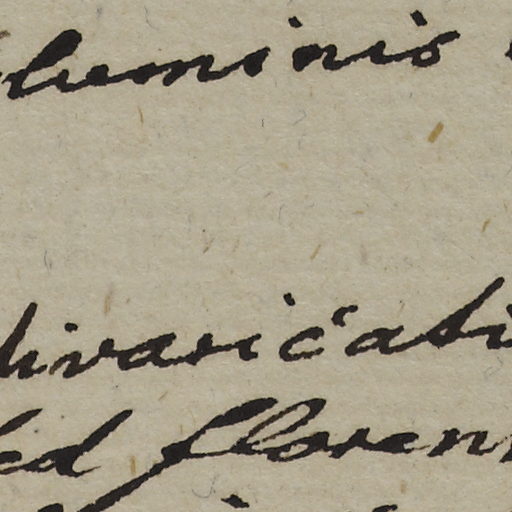 luminis
divaricati
ed floren